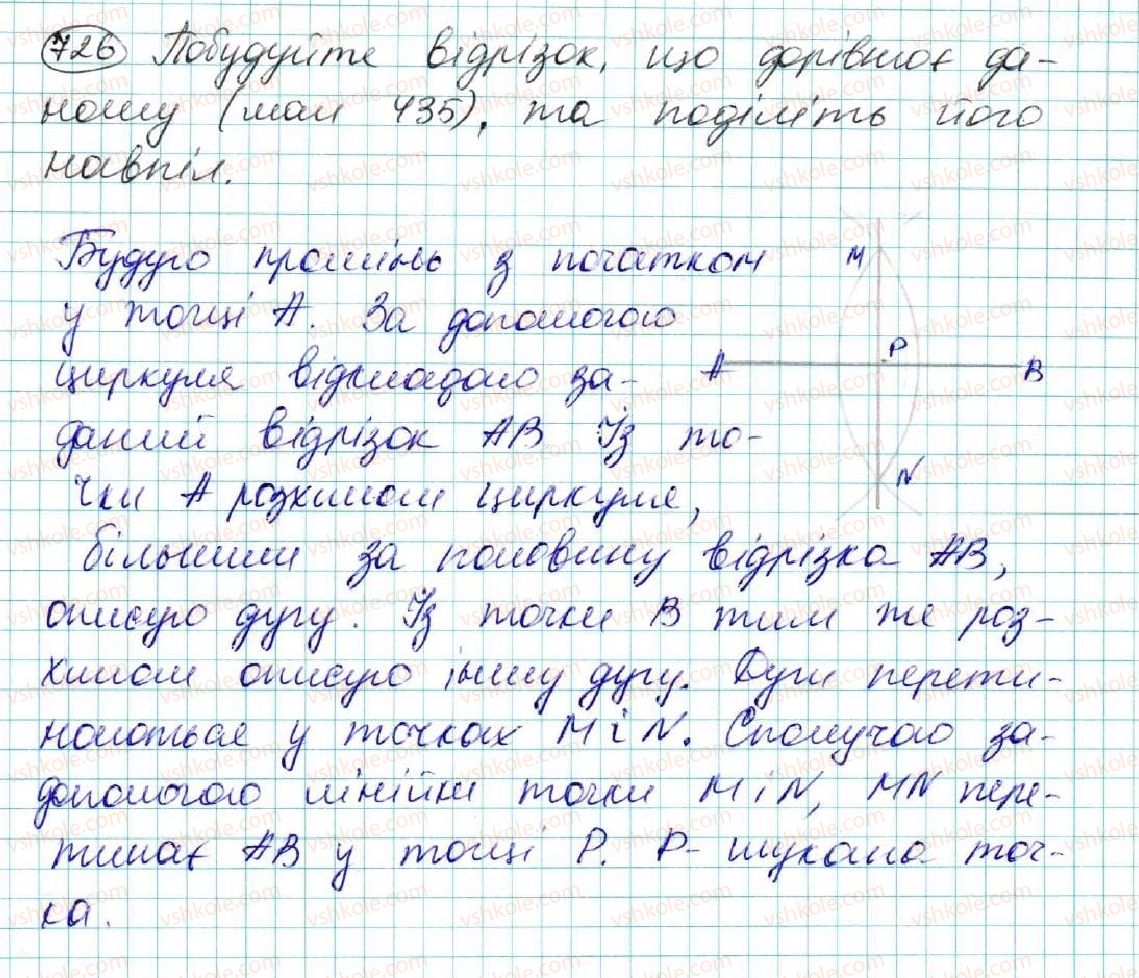 726 Побудуйте відрізок, що дорівнює да-
ному (мал 435), та поділіть його
навпіл.
Будую промінь з початком
у точці А. За допомогою
циркуля відкладаю за-
даний відрізок АВ. Із то-
чки А розхилом циркуля,
більшим за половину відрізка АВ,
описую дугу. Із точки В тим же роз-
хилом описую іншу дугу. Дуги перети-
наються у точках М і N. Сполучаю за-
допомогою лінійки точки М і N, MN пере-
тинає АВ у точці Р. Р- шукана точ-
ка.
M
P
A
B
N
vshkole.com